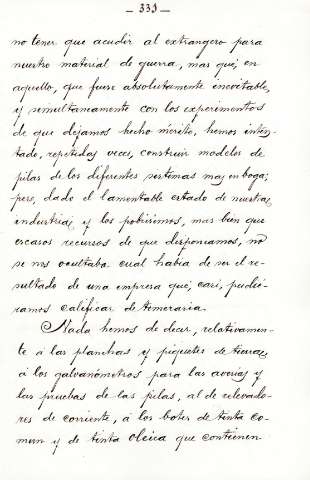 - 335 -
no tener que acudir al extrangero para
nuestro material de guerra, mas que, en
aquello, que fuese absolutamente inevitable,
y simultaneamente con los experimentos
de que dejamos hecho mérito, hemos inten-
tado, repetidas veces, construir modelos de
pilas de los diferentes sistemas mas en boga;
pero, dado el lamentable estado de nuestra
industria, y los pobrisimos, mas bien que
escasos recursos de que disponiamos, no
se nos ocultaba cual habia de ser el re-
sultado de una empresa que, casi, pudié-
ramos calificar de temeraria.
Nada hemos de decir, relativamen-
te á las planchas y piquetes de tierra,
á los galvanómetros para las averias y
las pruebas de las pilas, al de relevado-
res de corriente, á los botes de tinta co-
mun y de tinta oleica que contienen